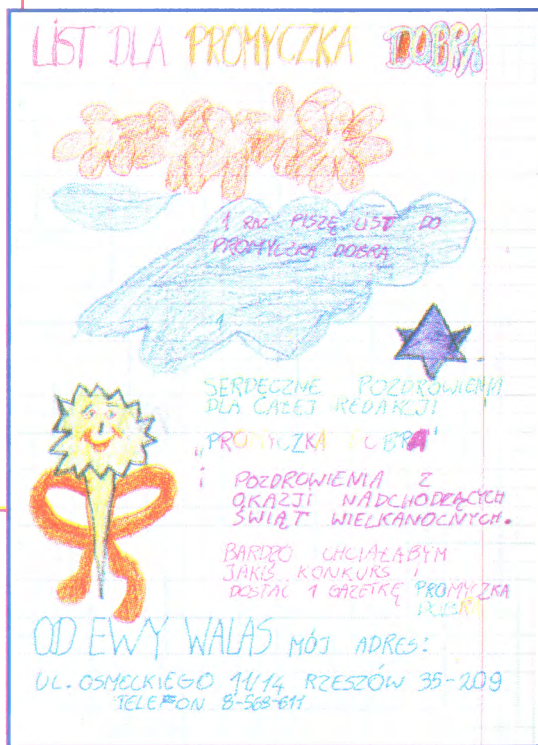 LIST DLA PROMYCZKA DOBRA
1 RAZ PISZĘ LIST DO
PROMYCZKA DOBRA
SERDECZNE POZDROWIENIA
DLA CAŁEJ REDAKCJI
„PROMYCZKA DOBRA"
i POZDROWIENIA Z
OKAZJI NADCHODZĄCYCH
ŚWIĄT WIELKANOCNYCH.
BARDZO CHCIAŁABYM
JAKIŚ KONKURS I
DOSTAĆ 1 GAZETKĘ PROMYCZKA
DOBRA
OD EWY WALAS MÓJ ADRES:
UL. OSMECKIEGO 11/14 RZESZÓW 35-209
TELEFON 8-568-611